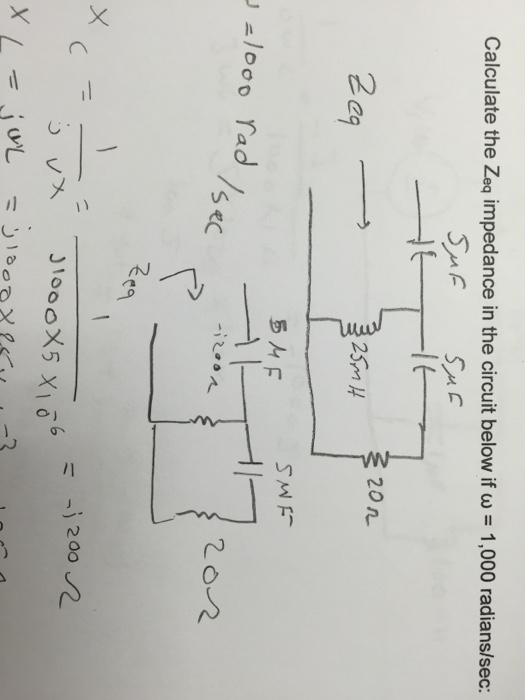 Calculate the Zeq impedance in the circuit below if ω = 1,000 radians/sec:
5μF 5μF
Zeq → 25mH 20Ω
=1000 rad/sec
5MF 5MF
-j200Ω
20Ω
Zeq
XC = 1 / jvx = 1 / J1000X5X10-6 = -j200Ω
XL = jωL = j1000X25X